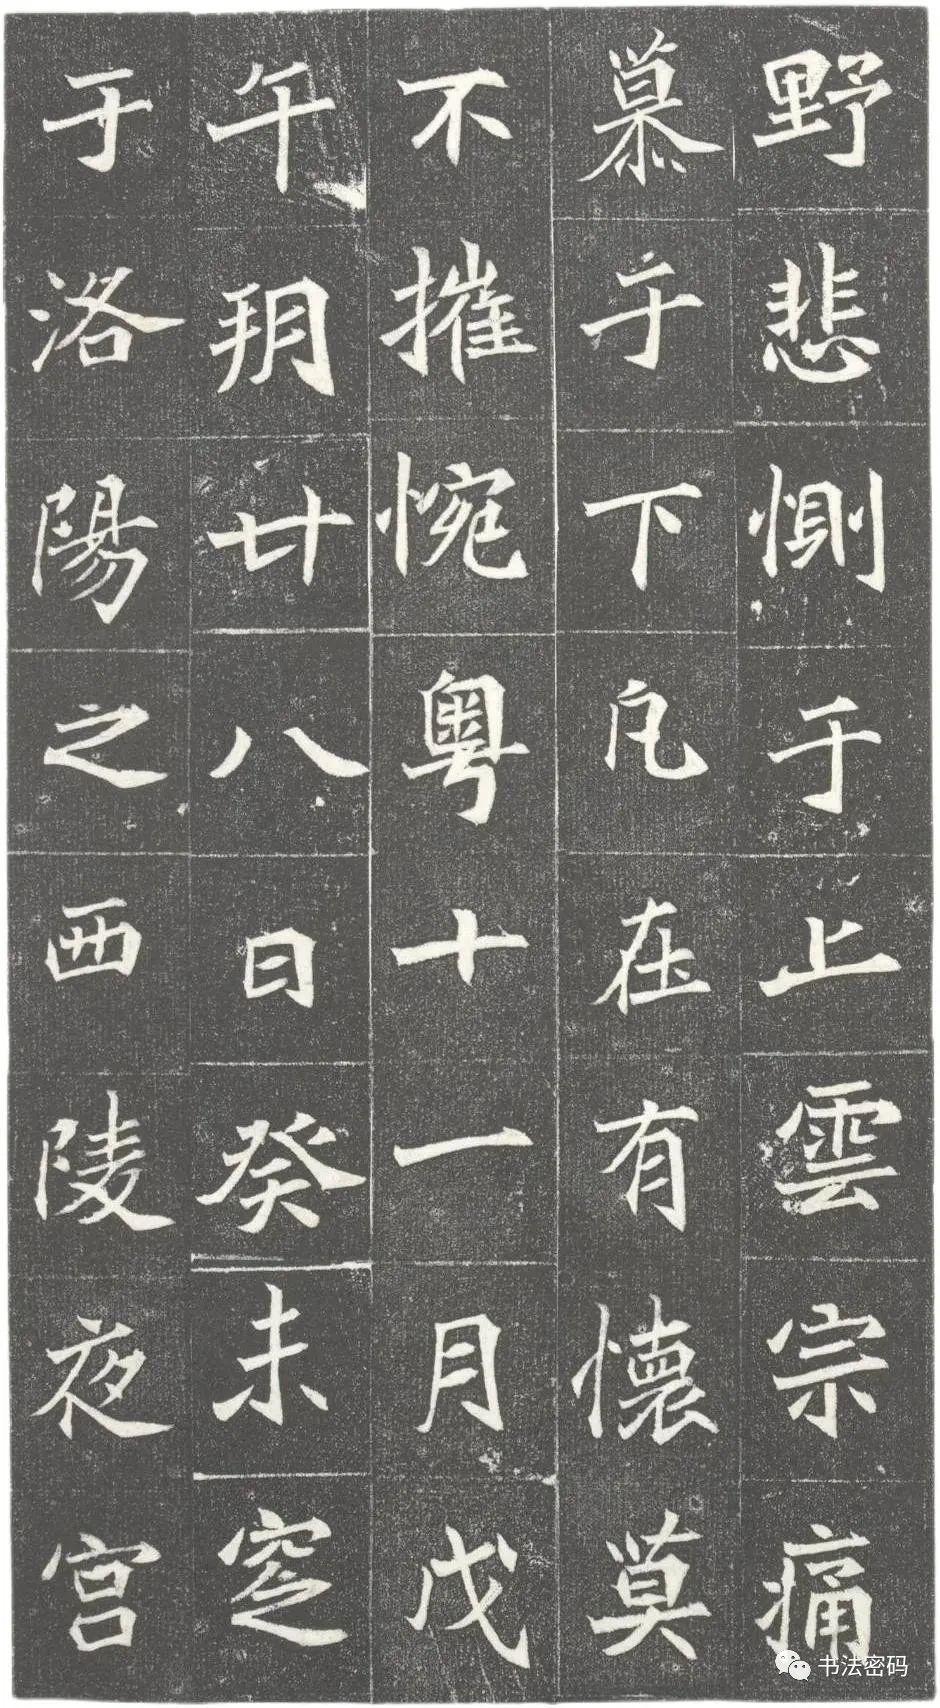 野悲惻于上雲宗痛
慕于下凡在有懷莫
不摧惋粤十一月戊
午朔廿八日癸未窆
于洛陽之西陵夜宫
书法密码